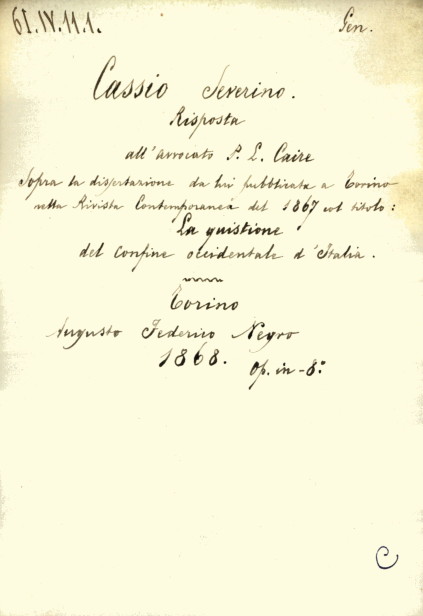 61.IV.11.1.
Gen.
Cassio Severino.
Risposta
all'avvocato P. L. Caire
sopra la dissertazione da lui pubblicata a Torino
nella Rivista Contemporanea del 1867 col titolo:
La quistione
del confine occidentale d'Italia.
Torino
Augusto Federico Negro
1868.
Op. in-8º
C